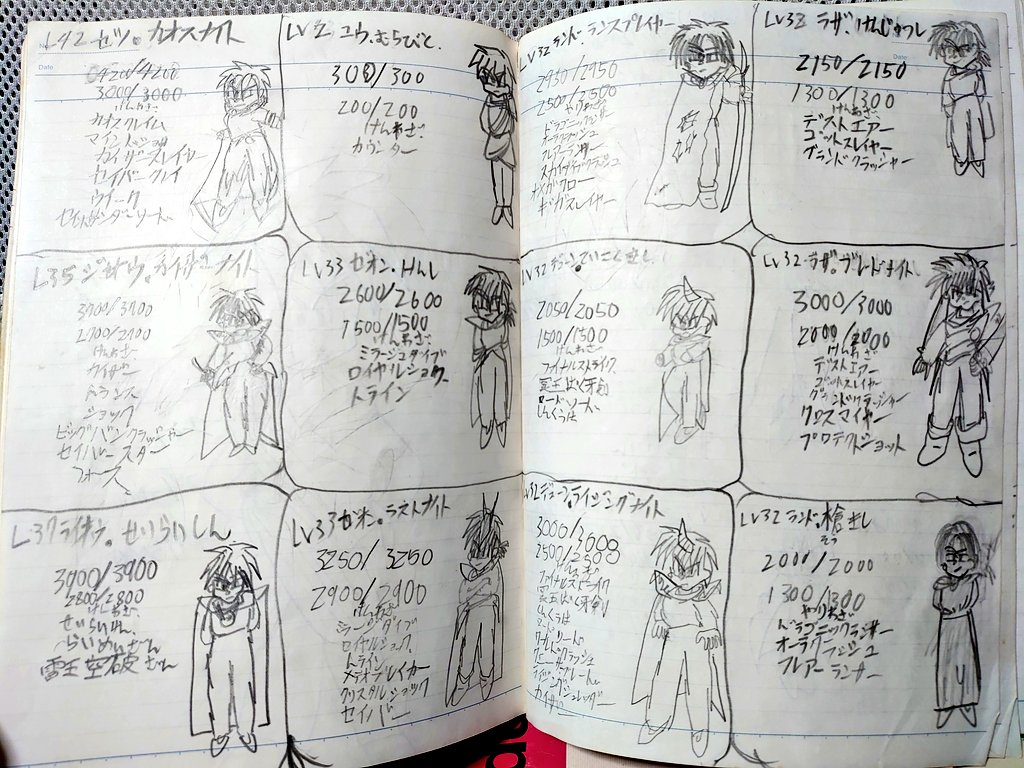 L42 セツ。カオスナイト
4200/4200
3000/3000
けんわざ
カオスクレイム
マインドショック
カイザースレイヤー
セイバークレイ
ウイーク
セイントサンダーソード
Lv2 ユウ、むらびと
300/300
200/200
けんわざ
カウンター
L35 ジオウ。カイザーナイト
3900/3900
2900/2900
けんわざ
カイザー
トランス
ショック
ビッグバンクラッシャー
セイバースター
フォース
Lv33 ゼオン.けんし
2600/2600
1500/1500
けんわざ
ミラージュダイブ
ロイヤルショック
トライン
L37 ライオウ。せいらいしん
3900/3900
2800/2800
けんわざ
せいらいけん
らいめいざん
雪王空破ざん
Lv33 ゼオン。ラストナイト
3250/3250
2900/2900
けんわざ
ミラージュダイブ
ロイヤルショック
トライン
メテオブレイカー
クリスタルショック
セイバー
Lv32 ランド。ランスプレイヤー
2950/2950
2500/2500
やりわざ
ドラゴニックランサー
オーラクラッシュ
フレアーランサー
メガクロー
ギガスレイヤー
Lv32 ラザ。けんじゅつし
2150/2150
1300/1300
けんわざ
デストエアー
ゴットスレイヤー
グランドクラッシャー
Lv32 デューン。ていこくきし
2050/2050
1500/1500
けんわざ
ファイナルストライク
冥王ばく牙剣
ロードソード
しんくうは
Lv32 ラザ。ブレードナイト
3000/3000
2000/2000
けんわざ
デストエアー
ゴットスレイヤー
グランドクラッシャー
クロスマイヤー
プロテクトショット
Lv32 デューン。ライジングナイト
3000/3000
けんわざ
ファイナルストライク
冥王ばく牙剣
しんくうは
Lv32 ランド.槍きし
そう
2000/2000
1300/1300
やりわざ
ドラゴニックランサー
オーラクラッシュ
フレアーランサー